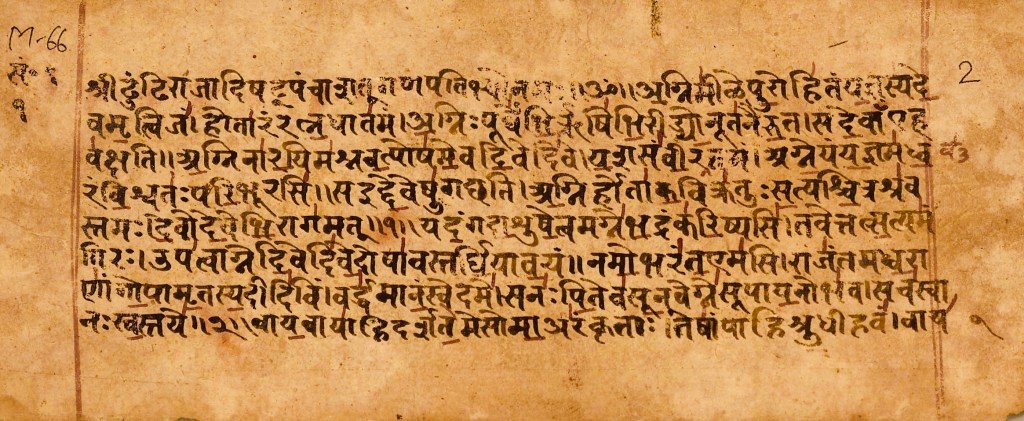 M-66
2
श्री ढुंढिराजादिषट्पंचा
ॐ॥ अग्निमीळेपुरोहितंयज्ञस्यदे
वमृत्विजं। होतारंरत्नधातमं। अग्निःपूर्वेभिर्ऋषिभिरीड्योनूतनैरुत। सदेवाँएह
वक्षति॥ अग्निनारयिमश्नवत्पोषमेवदिवेदिवे। यशसंवीरवत्तमं। अग्नेयंयज्ञमध्व
रंविश्वतःपरिभूरसि॥ सइद्देवेषुगछति। अग्निर्होताकविक्रतुःसत्यश्चित्रश्रव
स्तमः। देवोदेवेभिरागमत्॥१॥ यदंगदाशुषेत्वमग्नेभद्रंकरिष्यसि। तवेत्तत्सत्यमं
गिरः। उपत्वाग्नेदिवेदिवेदोषावस्तर्धियावयं॥ नमोभरंतएमसि। राजंतमध्वरा
णांगोपामृतस्यदीदिविं। वर्द्धमानंस्वेदमे। सनःपितेवसूनवेग्नेसूपायनोभव। सचस्वा
नःस्वस्तये॥२॥ वायवायाहिदर्शतेमेसोमाअरंकृताः। तेषांपाहिश्रुधीहवं। वाय